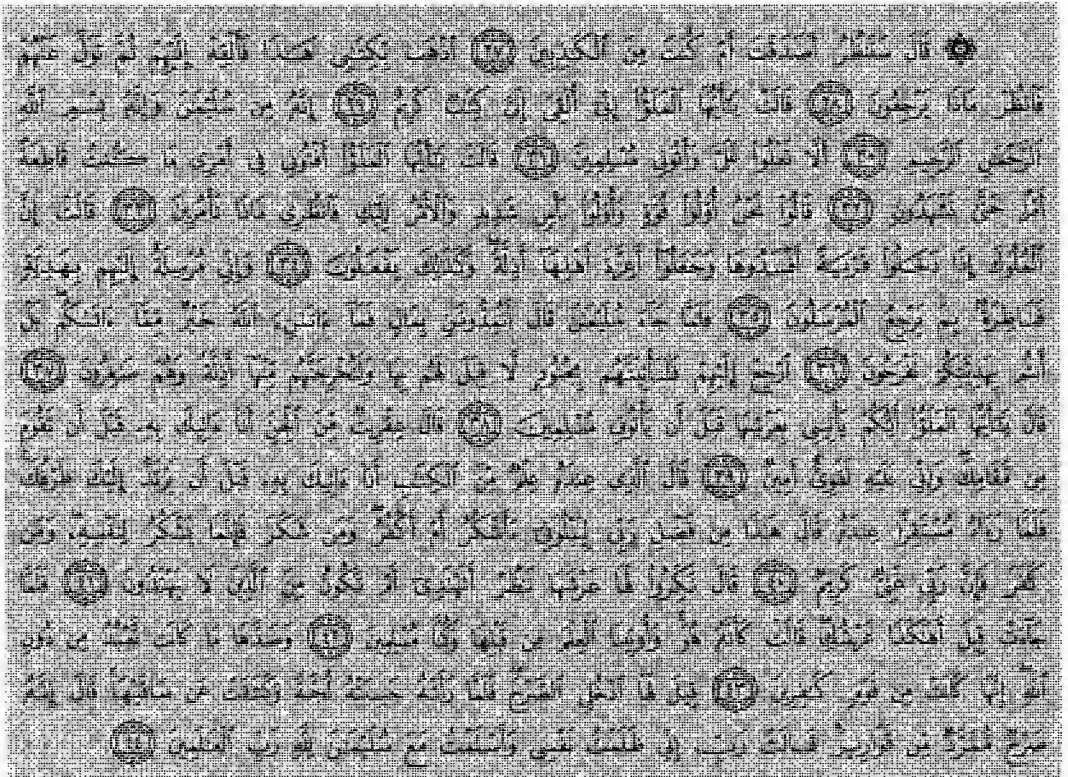 ۞ قَالَ سَنَنظُرُ أَصَدَقْتَ أَمْ كُنتَ مِنَ ٱلْكَٰذِبِينَ ﴿٢٧﴾ ٱذْهَب بِّكِتَٰبِى هَٰذَا فَأَلْقِهْ إِلَيْهِمْ ثُمَّ تَوَلَّ عَنْهُمْ
فَٱنظُرْ مَاذَا يَرْجِعُونَ ﴿٢٨﴾ قَالَتْ يَٰٓأَيُّهَا ٱلْمَلَؤُا۟ إِنِّىٓ أُلْقِىَ إِلَىَّ كِتَٰبٌ كَرِيمٌ ﴿٢٩﴾ إِنَّهُۥ مِن سُلَيْمَٰنَ وَإِنَّهُۥ بِسْمِ ٱللَّهِ
ٱلرَّحْمَٰنِ ٱلرَّحِيمِ ﴿٣٠﴾ أَلَّا تَعْلُوا۟ عَلَىَّ وَأْتُونِى مُسْلِمِينَ ﴿٣١﴾ قَالَتْ يَٰٓأَيُّهَا ٱلْمَلَؤُا۟ أَفْتُونِى فِىٓ أَمْرِى مَا كُنتُ قَاطِعَةً
أَمْرًا حَتَّىٰ تَشْهَدُونِ ﴿٣٢﴾ قَالُوا۟ نَحْنُ أُو۟لُوا۟ قُوَّةٍ وَأُو۟لُوا۟ بَأْسٍ شَدِيدٍ وَٱلْأَمْرُ إِلَيْكِ فَٱنظُرِى مَاذَا تَأْمُرِينَ ﴿٣٣﴾ قَالَتْ إِنَّ
ٱلْمُلُوكَ إِذَا دَخَلُوا۟ قَرْيَةً أَفْسَدُوهَا وَجَعَلُوٓا۟ أَعِزَّةَ أَهْلِهَآ أَذِلَّةً وَكَذَٰلِكَ يَفْعَلُونَ ﴿٣٤﴾ وَإِنِّى مُرْسِلَةٌ إِلَيْهِم بِهَدِيَّةٍ
فَنَاظِرَةٌۢ بِمَ يَرْجِعُ ٱلْمُرْسَلُونَ ﴿٣٥﴾ فَلَمَّا جَآءَ سُلَيْمَٰنَ قَالَ أَتُمِدُّونَنِ بِمَالٍ فَمَآ ءَاتَىٰنِۦَ ٱللَّهُ خَيْرٌ مِّمَّآ ءَاتَىٰكُم بَلْ
أَنتُم بِهَدِيَّتِكُمْ تَفْرَحُونَ ﴿٣٦﴾ ٱرْجِعْ إِلَيْهِمْ فَلَنَأْتِيَنَّهُم بِجُنُودٍ لَّا قِبَلَ لَهُم بِهَا وَلَنُخْرِجَنَّهُم مِّنْهَآ أَذِلَّةً وَهُمْ صَٰغِرُونَ ﴿٣٧﴾
قَالَ يَٰٓأَيُّهَا ٱلْمَلَؤُا۟ أَيُّكُمْ يَأْتِينِى بِعَرْشِهَا قَبْلَ أَن يَأْتُونِى مُسْلِمِينَ ﴿٣٨﴾ قَالَ عِفْرِيتٌ مِّنَ ٱلْجِنِّ أَنَا۠ ءَاتِيكَ بِهِۦ قَبْلَ أَن تَقُومَ
مِن مَّقَامِكَ وَإِنِّى عَلَيْهِ لَقَوِىٌّ أَمِينٌ ﴿٣٩﴾ قَالَ ٱلَّذِى عِندَهُۥ عِلْمٌ مِّنَ ٱلْكِتَٰبِ أَنَا۠ ءَاتِيكَ بِهِۦ قَبْلَ أَن يَرْتَدَّ إِلَيْكَ طَرْفُكَ
فَلَمَّا رَءَاهُ مُسْتَقِرًّا عِندَهُۥ قَالَ هَٰذَا مِن فَضْلِ رَبِّى لِيَبْلُوَنِىٓ ءَأَشْكُرُ أَمْ أَكْفُرُ وَمَن شَكَرَ فَإِنَّمَا يَشْكُرُ لِنَفْسِهِۦ وَمَن
كَفَرَ فَإِنَّ رَبِّى غَنِىٌّ كَرِيمٌ ﴿٤٠﴾ قَالَ نَكِّرُوا۟ لَهَا عَرْشَهَا نَنظُرْ أَتَهْتَدِىٓ أَمْ تَكُونُ مِنَ ٱلَّذِينَ لَا يَهْتَدُونَ ﴿٤١﴾ فَلَمَّا
جَآءَتْ قِيلَ أَهَٰكَذَا عَرْشُكِ قَالَتْ كَأَنَّهُۥ هُوَ وَأُوتِينَا ٱلْعِلْمَ مِن قَبْلِهَا وَكُنَّا مُسْلِمِينَ ﴿٤٢﴾ وَصَدَّهَا مَا كَانَت تَّعْبُدُ مِن دُونِ
ٱللَّهِ إِنَّهَا كَانَتْ مِن قَوْمٍ كَٰفِرِينَ ﴿٤٣﴾ قِيلَ لَهَا ٱدْخُلِى ٱلصَّرْحَ فَلَمَّا رَأَتْهُ حَسِبَتْهُ لُجَّةً وَكَشَفَتْ عَن سَاقَيْهَا قَالَ إِنَّهُۥ
صَرْحٌ مُّمَرَّدٌ مِّن قَوَارِيرَ قَالَتْ رَبِّ إِنِّى ظَلَمْتُ نَفْسِى وَأَسْلَمْتُ مَعَ سُلَيْمَٰنَ لِلَّهِ رَبِّ ٱلْعَٰلَمِينَ ﴿٤٤﴾